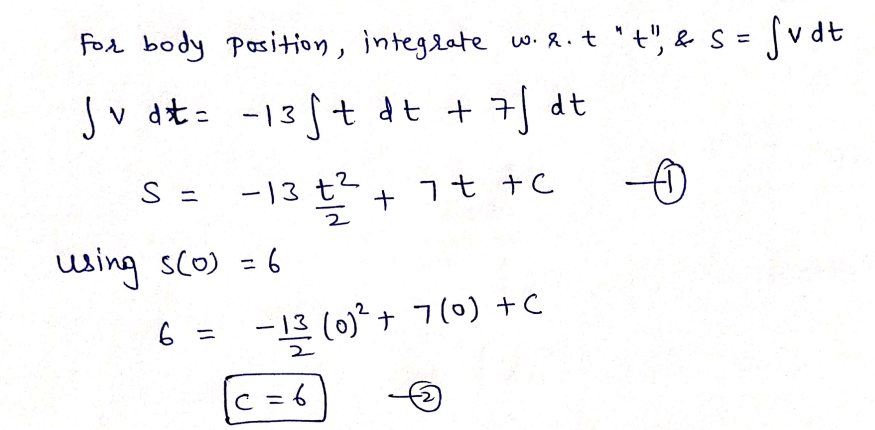 For body position, integrate w.r.t "t", & S = ∫v dt
∫v dt = -13∫t dt + 7∫ dt
S = -13 t²/2 + 7t + C —①
using s(0) = 6
6 = -13/2 (0)² + 7(0) + C
C = 6 —②